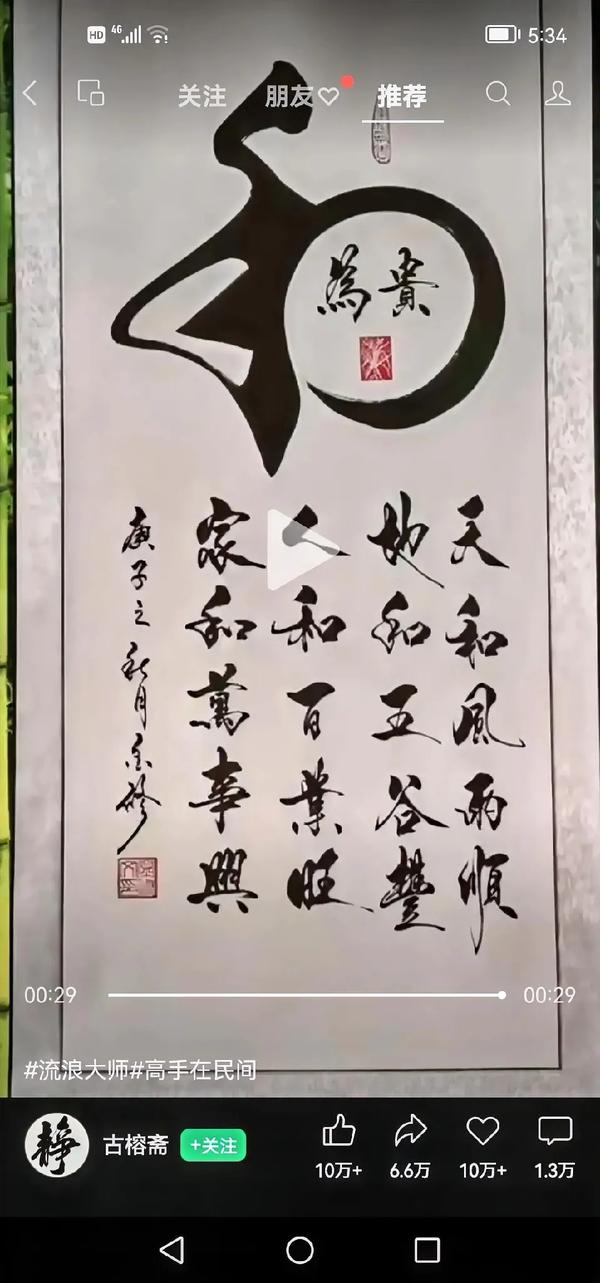 HD 4G 5:34
关注 朋友 推荐
和
為貴
天和風雨順
地和五谷豐
人和百業旺
家和萬事興
庚子之秋月
00:29 00:29
#流浪大师#高手在民间
靜 古榕斋 +关注
10万+ 6.6万 10万+ 1.3万